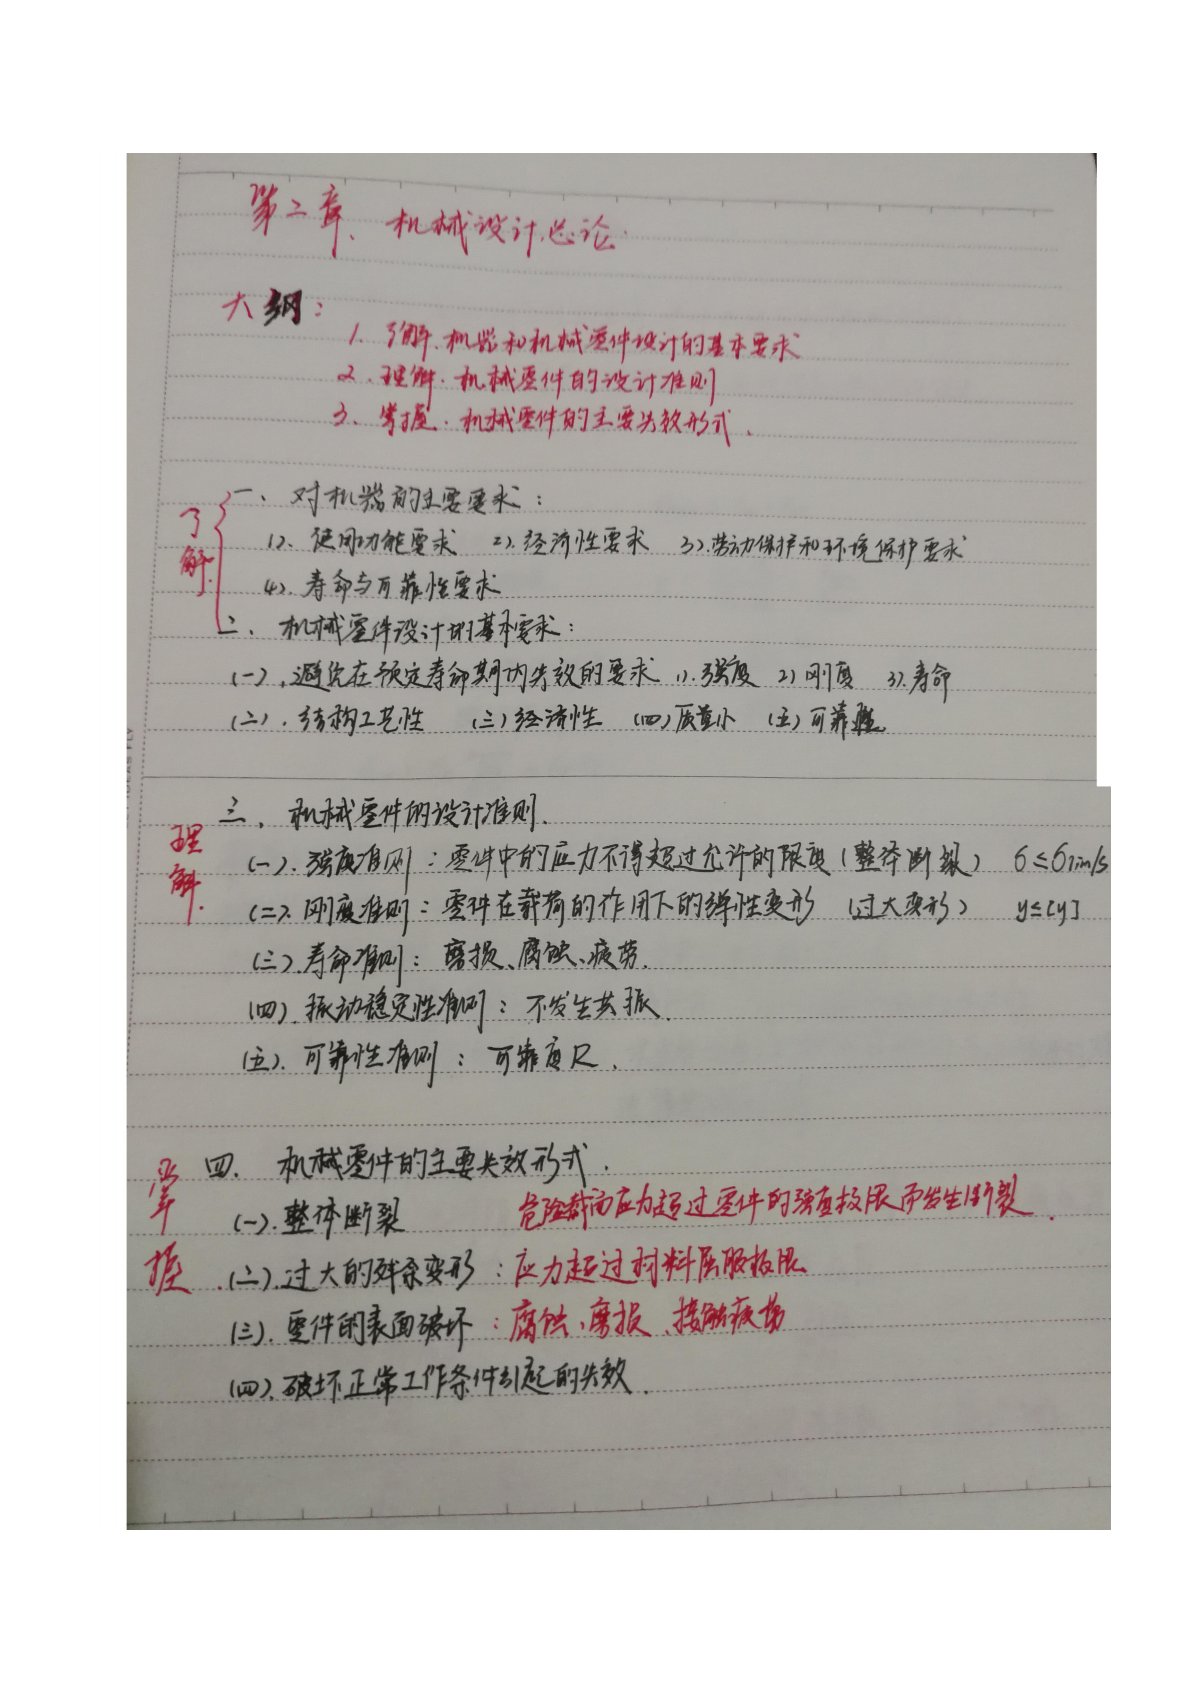 第二章、机械设计总论.
大纲:
1. 了解.机器和机械零件设计的基本要求
2. 理解.机械零件的设计准则
3. 掌握.机械零件的主要失效形式.
了解.
一、对机器的主要要求:
1). 使用功能要求 2). 经济性要求 3). 劳动保护和环境保护要求
4). 寿命与可靠性要求
二、机械零件设计的基本要求:
(一).避免在预定寿命期内失效的要求 1).强度 2)刚度 3).寿命
(二).结构工艺性 (三)经济性 (四)质量小 (五)可靠性
理解.
三、机械零件的设计准则.
(一).强度准则:零件中的应力不得超过允许的限度(整体断裂) σ≤σlim/s
(二).刚度准则:零件在载荷的作用下的弹性变形 (过大变形) y≤[y]
(三).寿命准则:磨损、腐蚀、疲劳.
(四).振动稳定性准则:不发生共振.
(五).可靠性准则:可靠度R.
掌握
四.机械零件的主要失效形式.
(一).整体断裂 危险截面应力超过零件的强度极限而发生断裂.
(二).过大的残余变形:应力超过材料屈服极限
(三).零件的表面破坏:腐蚀、磨损、接触疲劳
(四).破坏正常工作条件引起的失效.